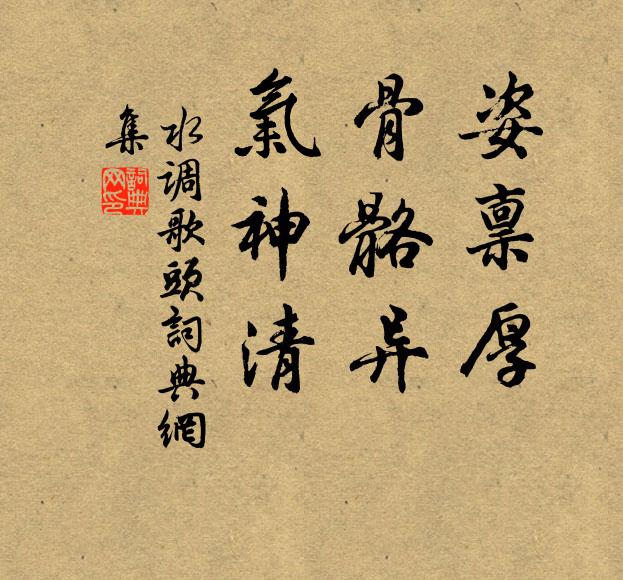 姿禀厚
骨骼异
氣神清
水调歌頭詞典網
集
詞典
网印